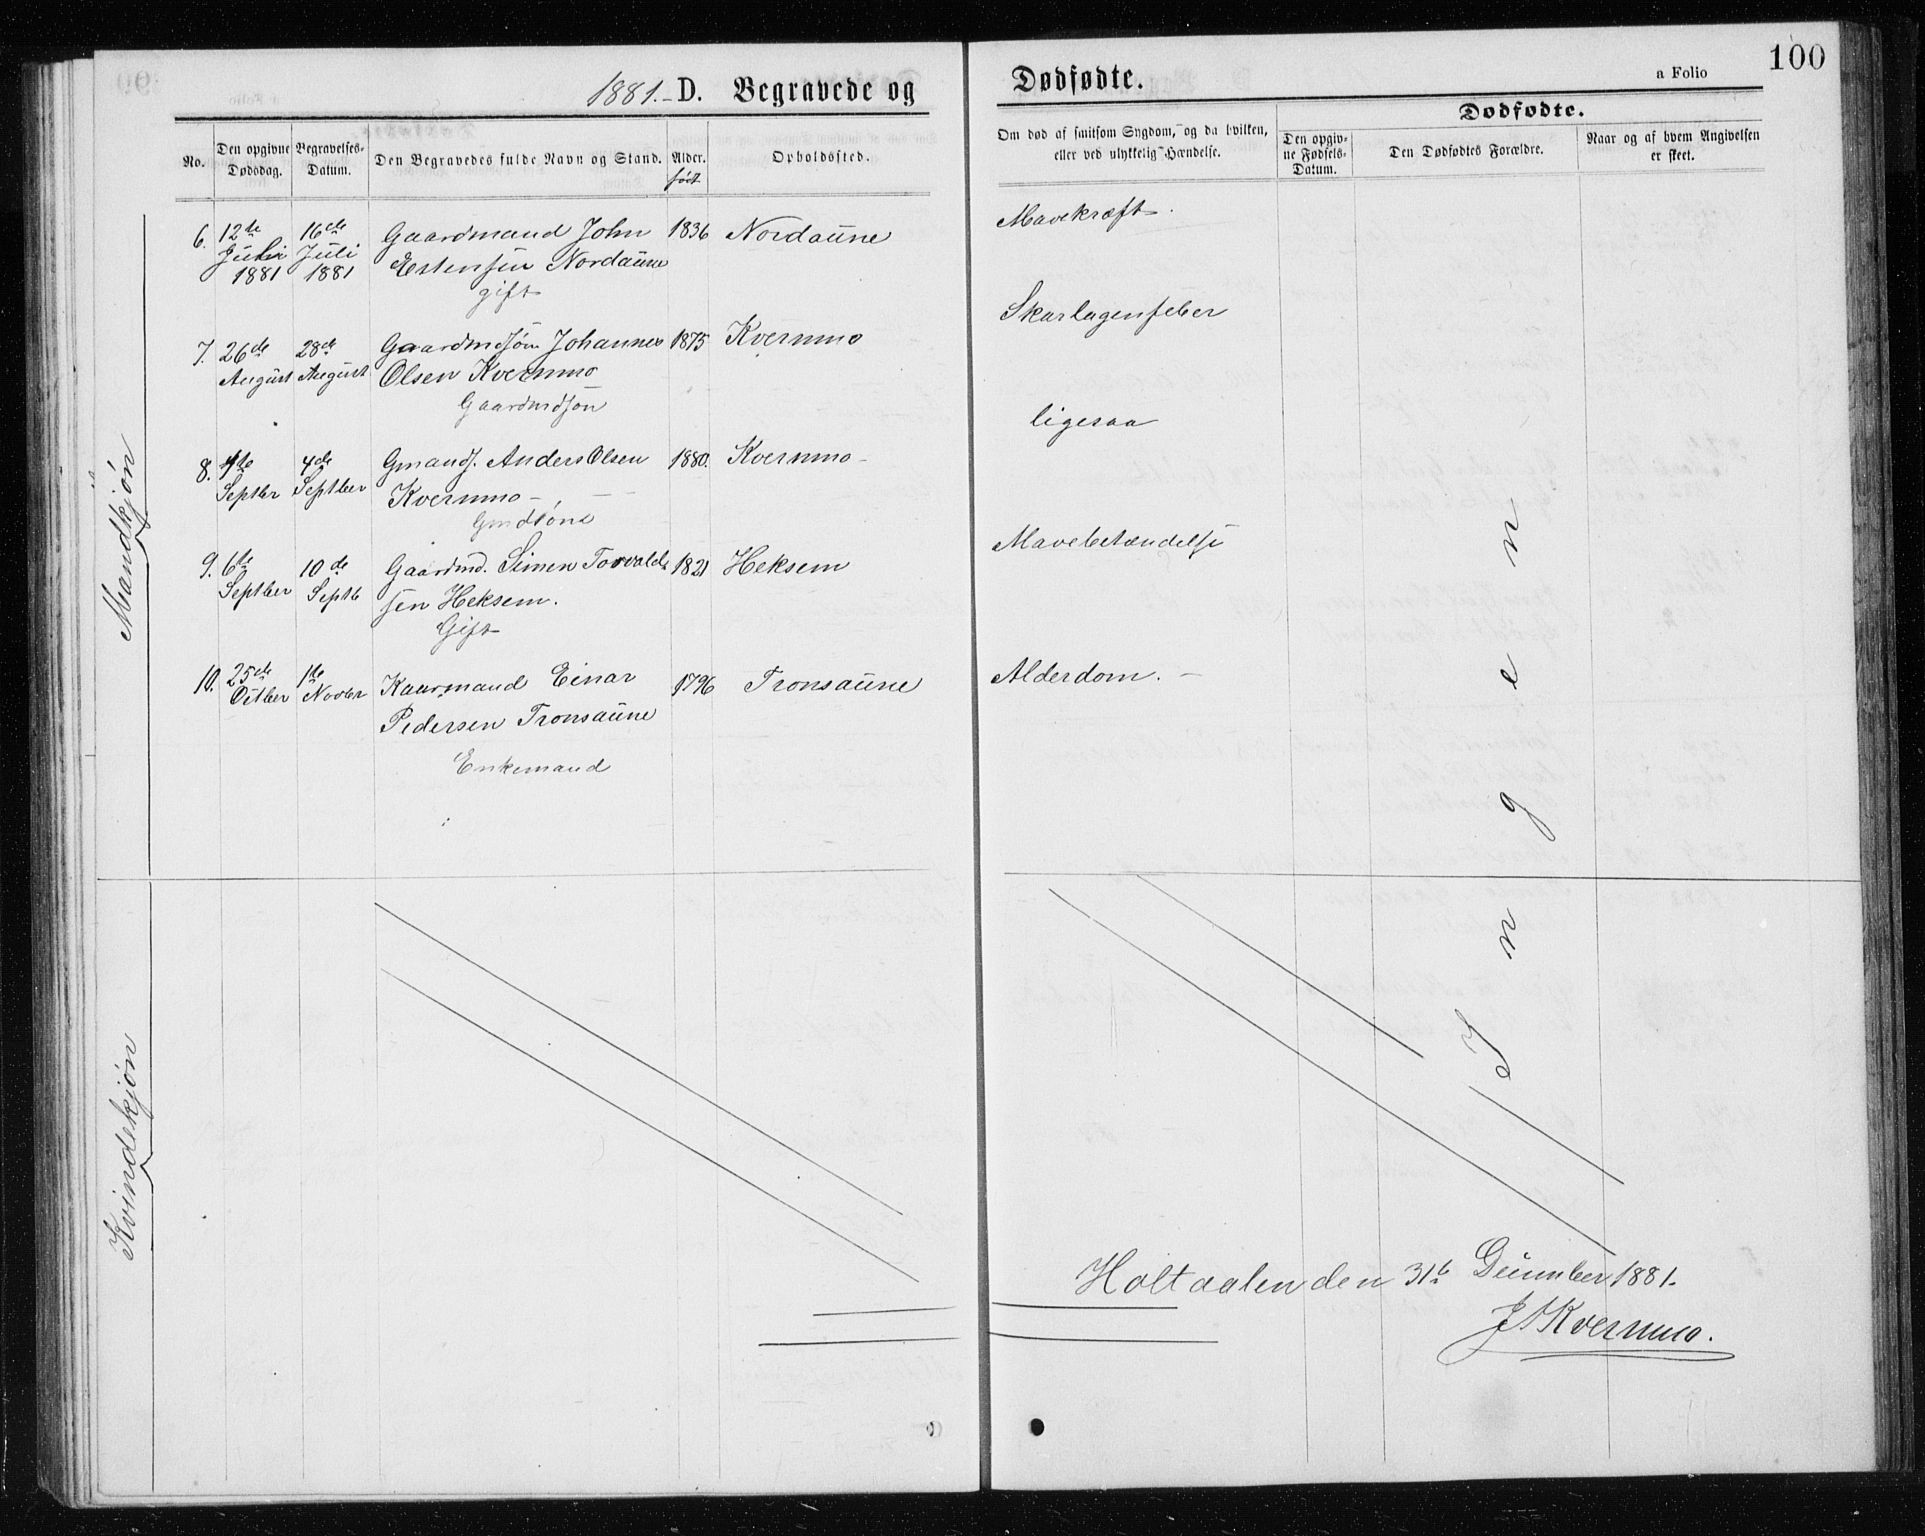 1881. – D. Begravede og
Dødfødte.
a Folio
100
No.
Den opgivne Dødsdag.
Begravelses-Datum.
Den Begravedes fulde Navn og Stand.
Alder.
født
Opholdssted.
Om død af smitsom Sygdom, og da hvilken,
eller ved ulykkelig Hændelse.
Dødfødte.
Den opgiv-
ne Fødsels-
Datum.
Den Dødfødtes Forældre.
Naar og af hvem Angivelsen
er skeet.
Mandkjøn
6. 12te 16de Gaardmand John 1836 Nordaune Mavekræft.
Juli Juli Estensen Nordaune
1881 1881 gift
7. 26de 28de Gaardmdsøn Johannes 1875 Kvernmo Skarlagenfeber
August August Olsen Kvernmo
Gaardmdsøn
8. 4de Gmands. Anders Olsen 1880. Kvernmo – ligesaa
Septbr Septber Kvernmo –
Gmdsøns
9. 6te 10de Gaardmd. Simen Torvald- 1821 Heksem Mavebetændelse
Septber Septb sen Heksem.
Gift
10. 25de 1te Kaarmand Einar 1796 Tronsaune Alderdom. –
Octber Novbr Pedersen Tronsaune
Enkemand
Kvindekjøn
Ingen
Holtaalen den 31te December 1881.
Kvernmo.